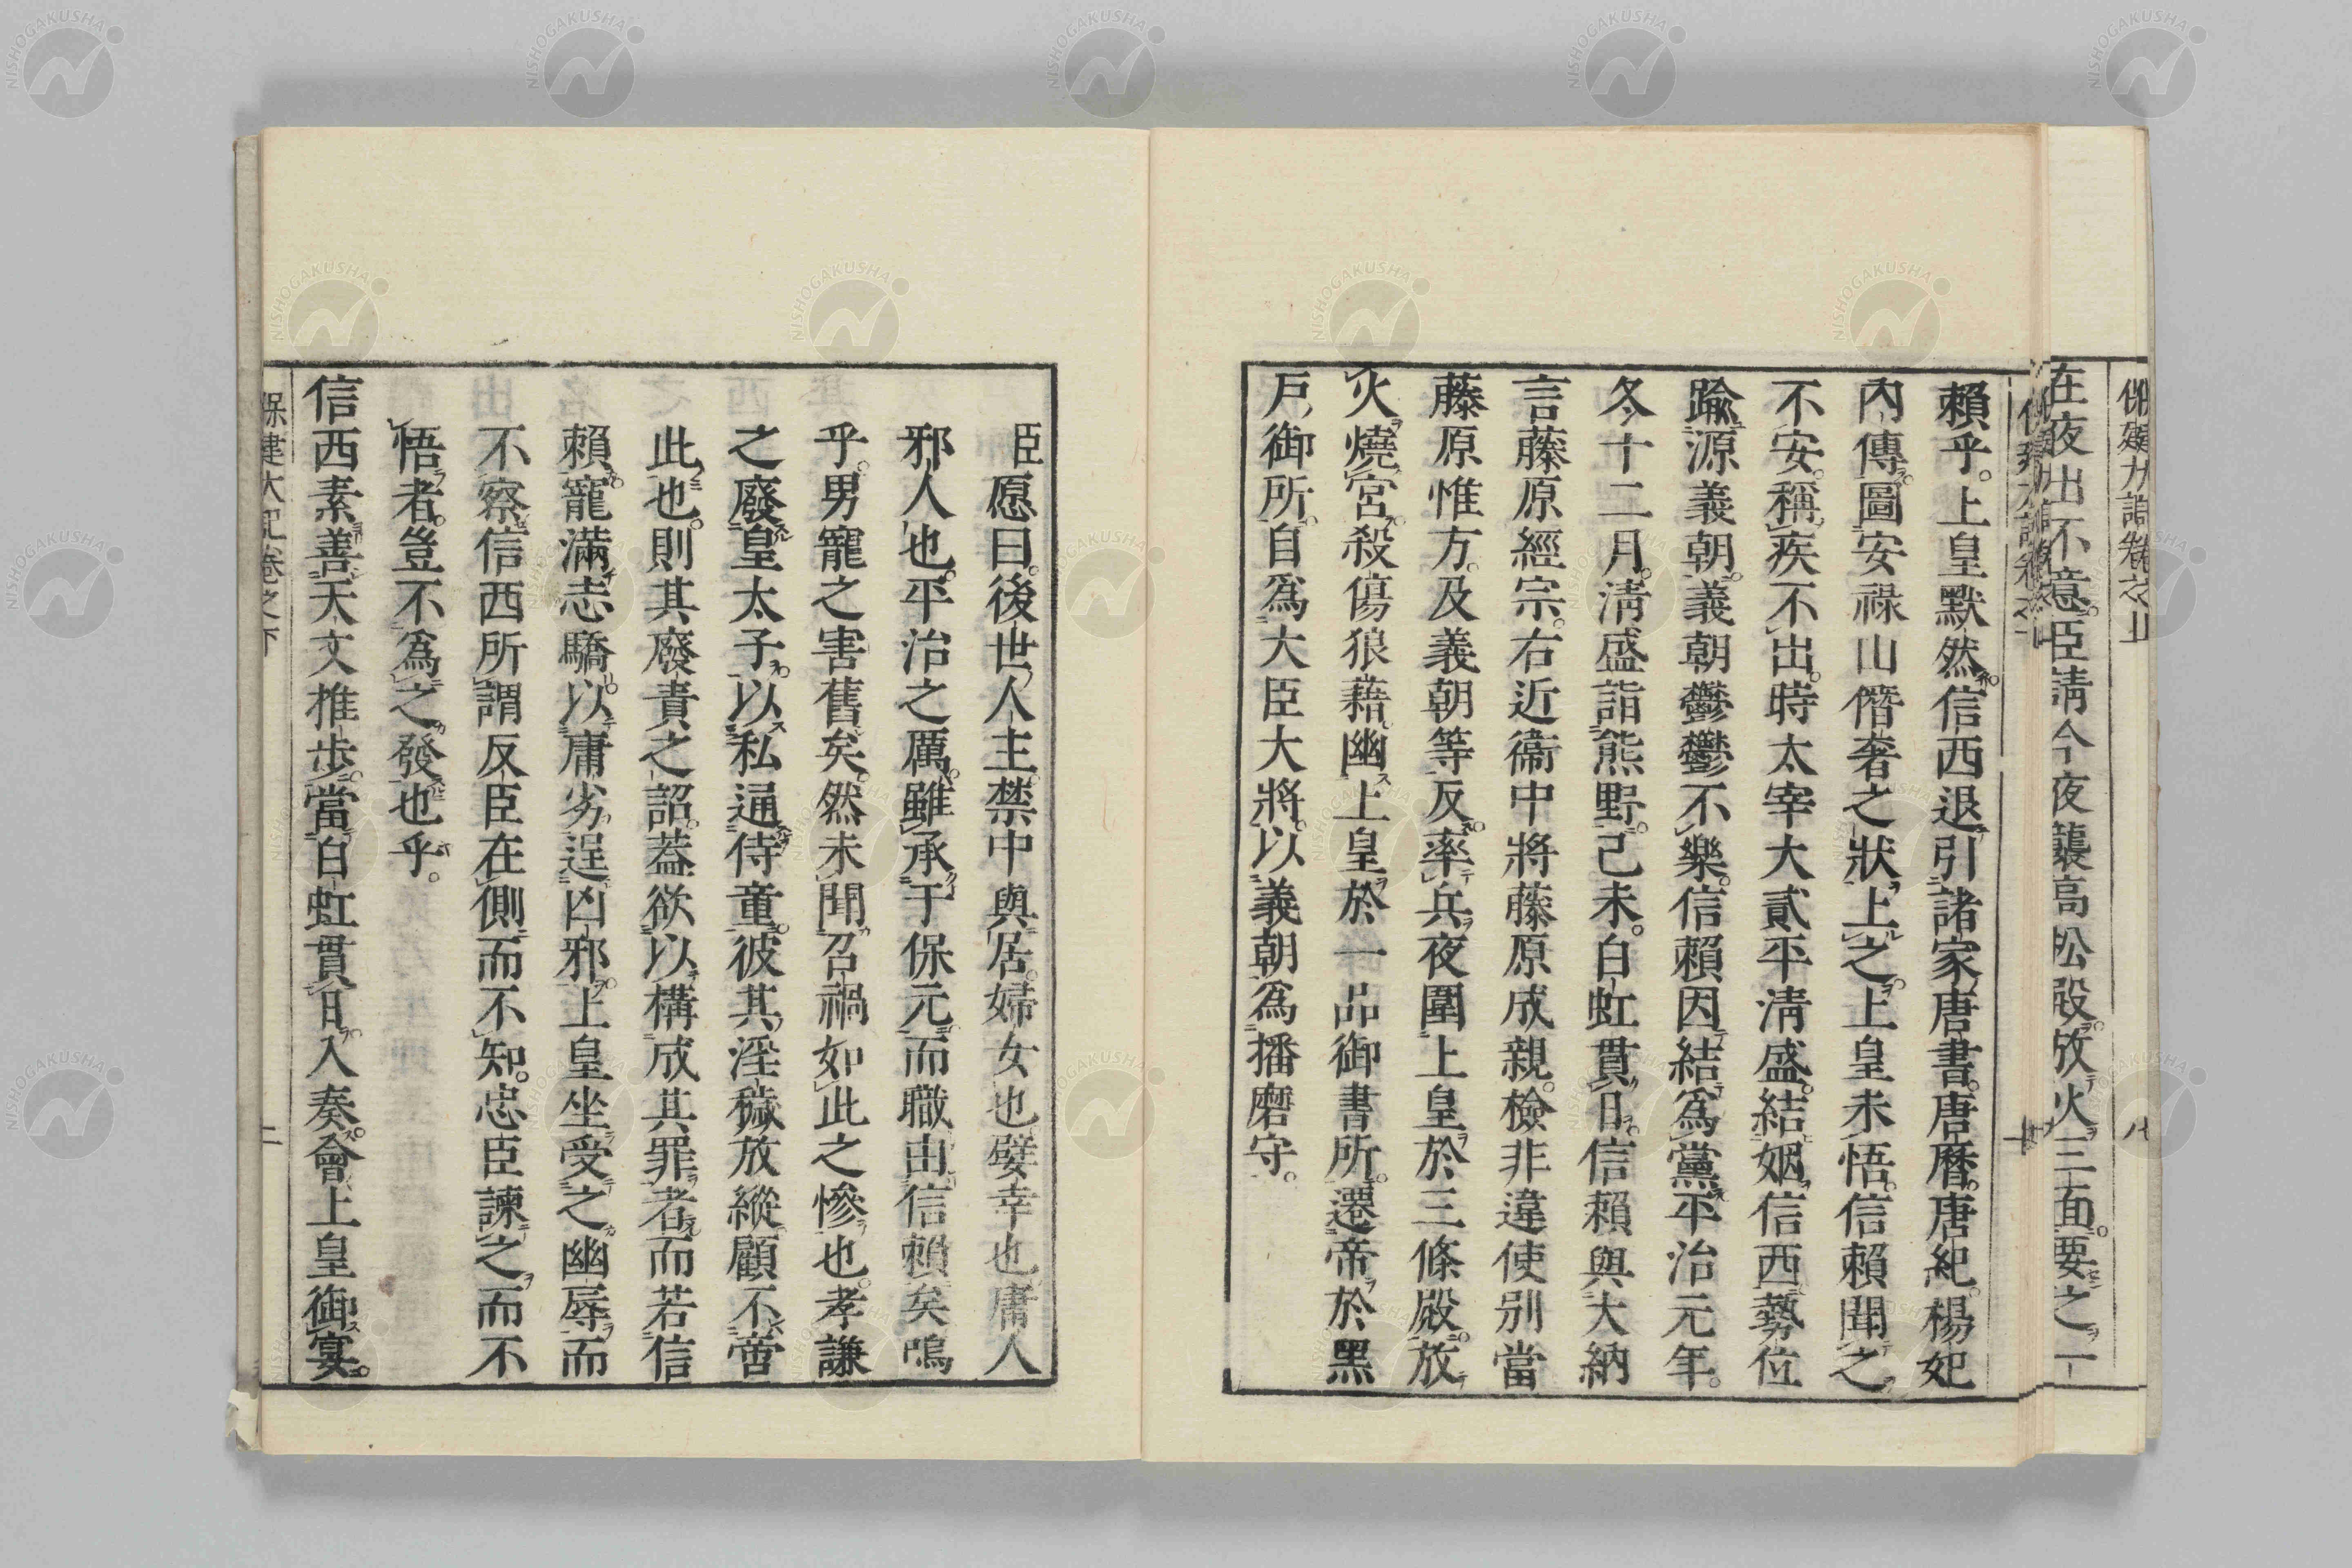 在夜出不意臣請今夜襲高松殿放火三面要之一
賴乎。上皇默然信西退引諸家唐書。唐曆。唐紀。楊妃
內傳圖安祿山僭奢之狀上之。上皇未悟。信賴聞之
不安。稱疾不出。時太宰大貳平淸盛。結姻信西勢位
踰源義朝。義朝鬱鬱不樂。信賴因結爲黨。平治元年。
冬十二月。淸盛詣熊野。己未。白虹貫日。信賴與大納
言藤原經宗。右近衞中將藤原成親。檢非違使別當
藤原惟方。及義朝等反。率兵夜圍上皇於三條殿。放
火燒宮。殺傷狼藉。幽上皇於一品御書所。遷帝於黑
戶御所。自爲大臣大將。以義朝爲播磨守。
臣愿曰。後世人主。禁中與居。婦女也嬖幸也庸人
邪人也。平治之厲。雖承于保元。而職由信賴矣嗚
乎。男寵之害舊矣。然未聞召禍如此之慘也。孝謙
之廢皇太子。以私通侍童。彼其淫穢放縱顧不啻
此也。則其廢責之詔。蓋欲以構成其罪者。而若信
賴。寵滿志驕。以庸劣逞凶邪。上皇坐受之幽辱而
不察。信西所謂反臣在側而不知。忠臣諫之而不
悟者。豈不爲之發也乎。
信西素善天文推步。當白虹貫日。入奏會上皇御宴。
保建大記卷之下
二